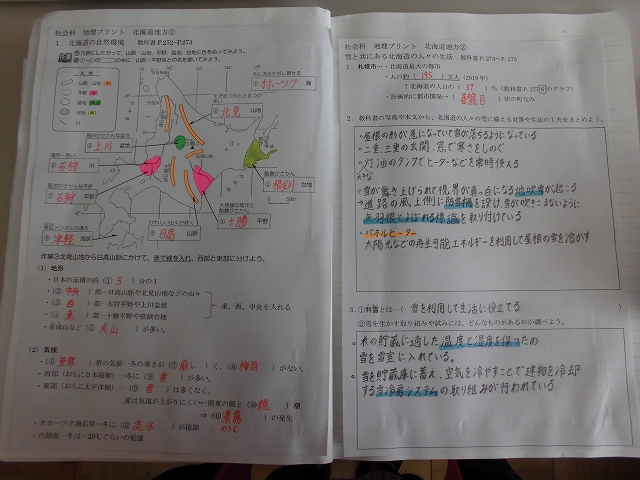 社会科 地理プリント 北海道地方①
1．北海道の自然環境 教科書P.272~P.273
凡例
山脈・山地
平野
盆地
台地
冬に流氷が押し寄せる
オホーツク 海
北見 山地
上川 盆地
石狩 川
石狩 平野
根釧 台地
十勝 平野
日高 山脈
津軽 海峡
作業③北見山地から日高山脈にかけて、赤で線を入れ、西部と東部に分けよう。
(1) 地形
・日本の面積の約(① 5 )分の1
・(② 中央 )部…日高山脈や北見山地などの山々
・(③ 西 )部…石狩平野や上川盆地
・(④ 東 )部…十勝平野や根釧台地
東、西、中央を入れる
・有珠山など(⑤ 火山 )が多い。
(2) 気候
・(⑥ 亜寒 )帯の気候…冬の寒さが(⑦ 厳し )く、(⑧ 梅雨 )がない。
・西部(おもに日本海側)…冬に(⑨ 雪 )が多い。
・東部(おもに太平洋側)…(⑨ 雪 )は多くなく、
夏は気温が上がりにくい←南東の風と(⑩ 親 )潮
⇒(⑪ 濃霧 )の発生
のうむ
・オホーツク海沿岸…冬に(⑫ 流氷 )が接岸
・内陸部…冬は-20℃ぐらいの低温
社会科 地理プリント 北海道地方②
雪と共にある北海道の人々の生活 教科書P.274~P.275
1．札幌市…・北海道最大の都市
・人口約( 195 )万人(2019年)
↑北海道の人口の( 37 )%(教科書P.217⑥のグラフ)
・計画的に都市開発→( 碁盤目 )状の町なみ
2．教科書の写真や本文から、北海道の人々の雪に備える対策や生活の工夫をまとめよう。
・屋根の形が急になっていて雪が落ちるようになっている
・二重、三重の玄関、窓で寒さをしのぐ
・灯油のタンクでヒーターなどを常時使える
大きな
・雪が巻き上げられて視界が真っ白になる地吹雪が起こる
→道路の風上側に防雪柵を設け、雪が吹きこまないように
矢羽根とよばれる標識を取り付けている
・パネルヒーター
太陽光などの再生可能エネルギーを利用して屋根の雪を溶かす
3．①利雪とは…( 雪を利用して生活に役立てる )
②雪を生かす取り組みや試みには、どんなものがあるのか調べよう。
・米の貯蔵に適した温度と湿度を保つため
雪を雪室に入れている。
・雪を貯蔵庫に蓄え、空気を冷やすことで建物を冷却
する雪冷房システムの取り組みが行われている